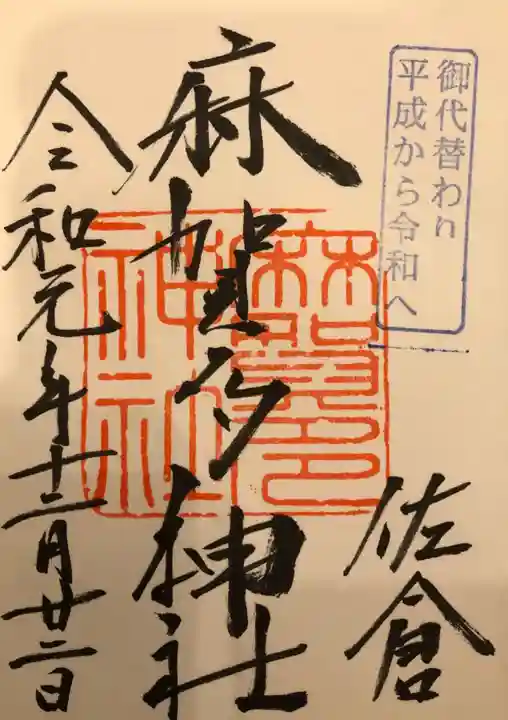 御代替わり
平成から令和へ
佐倉
麻賀多神社
麻賀多
神社
令和元年十二月廿二日